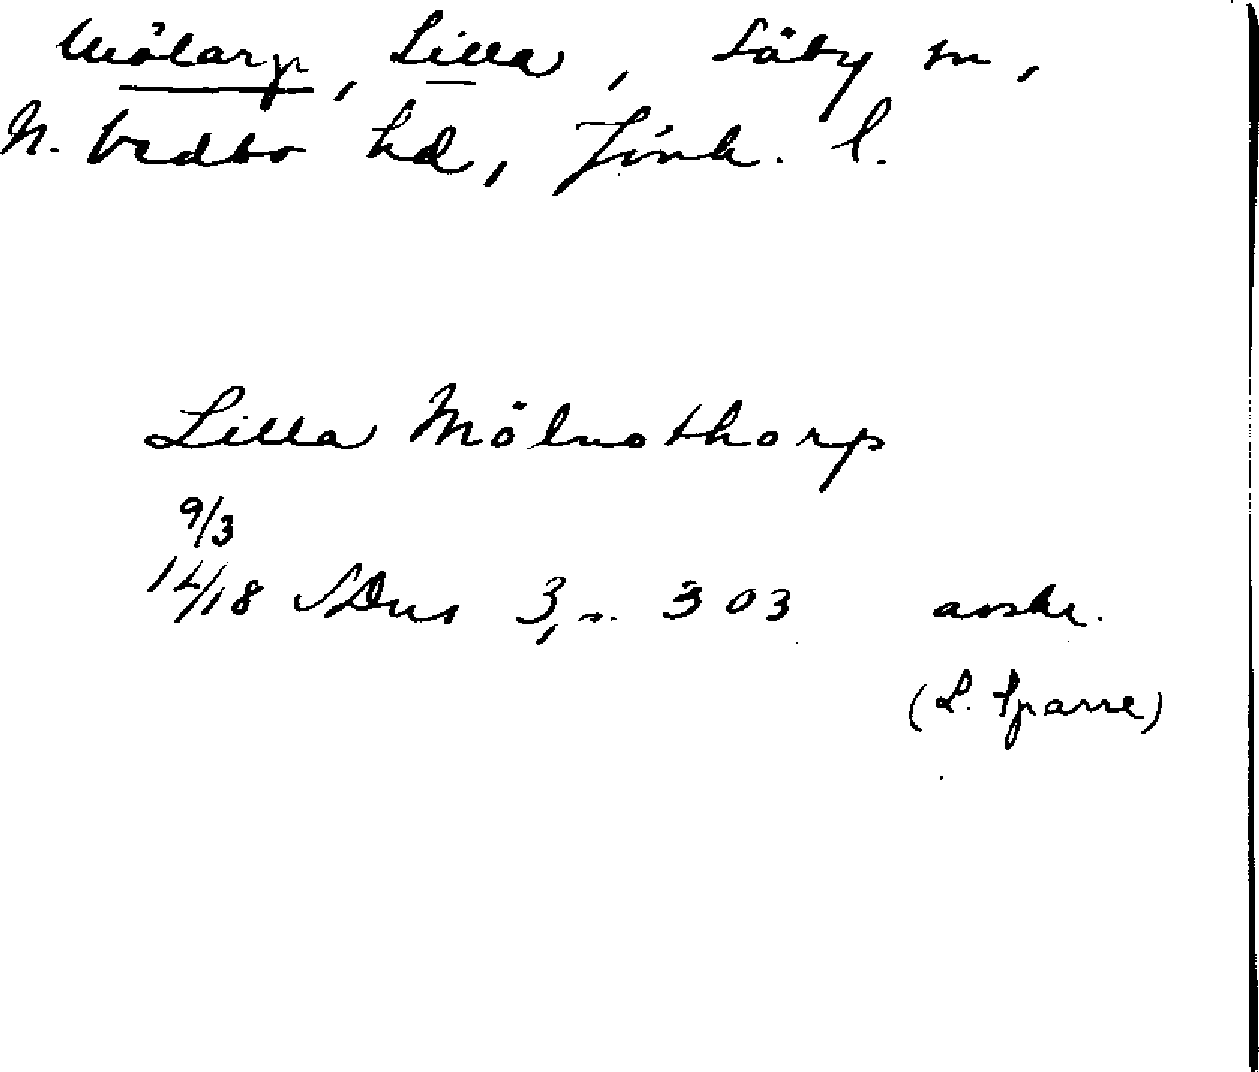 Mölarp, Lilla, Säby sn,
N. Vedbo hd, Jönk. l.
Lilla Mölnothorp
9/3
14/18 SDns 3, s. 303 avskr.
(L. Sparre)